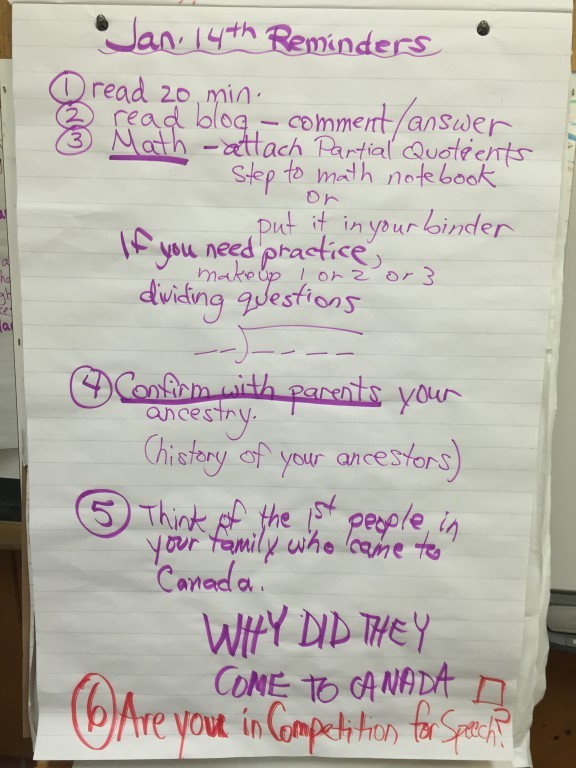 Jan. 14th Reminders
① read 20 min.
② read blog – comment/answer
③ Math – attach Partial Quotients
Step to math notebook
or
put it in your binder
If you need practice,
makeup 1 or 2 or 3
dividing questions
④ Confirm with parents your
ancestry.
(history of your ancestors)
⑤ Think of the 1st people in
your family who came to
Canada.
WHY DID THEY
COME TO CANADA
⑥ Are your in Competition for Speech?